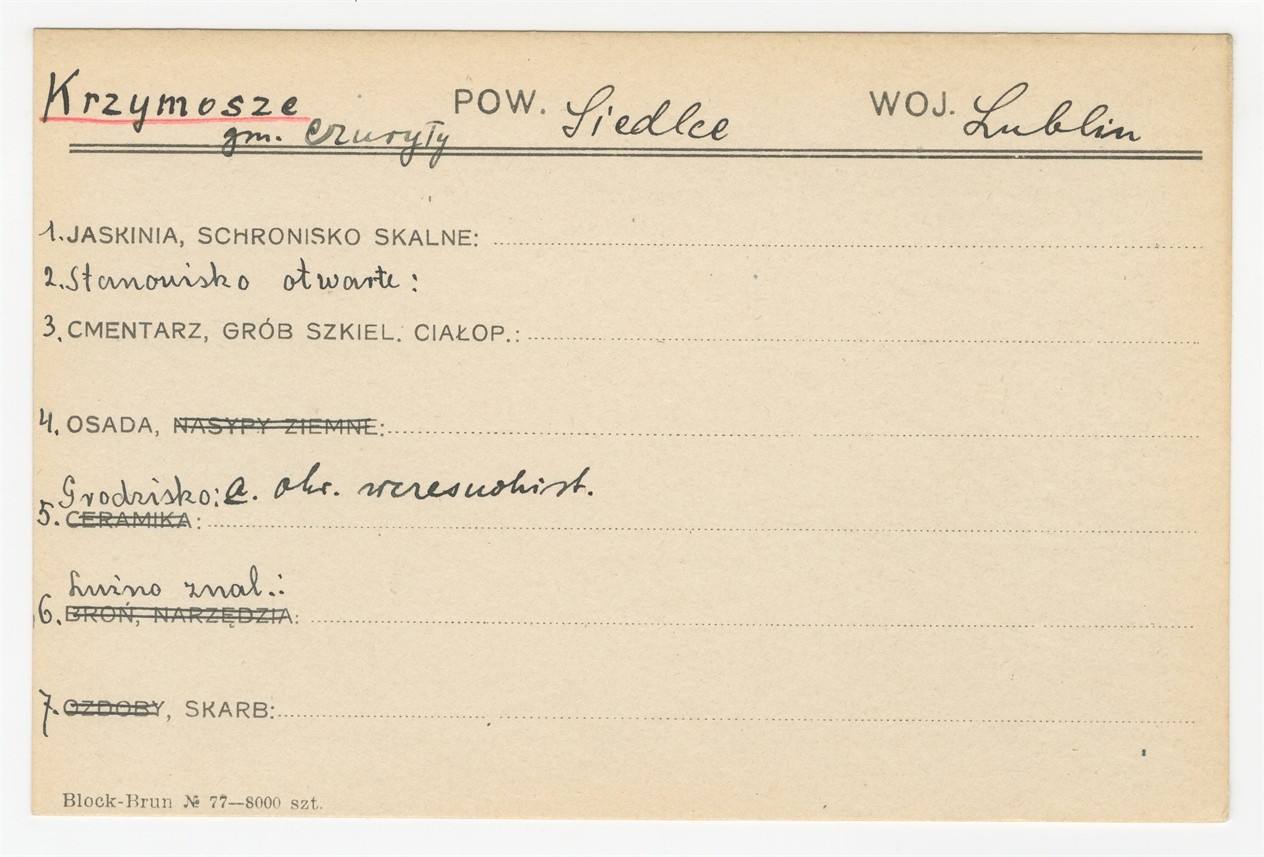 Krzymosze POW. Siedlce WOJ. Lublin
gm. Czuryły
1. JASKINIA, SCHRONISKO SKALNE:
2. Stanowisko otwarte:
3. CMENTARZ, GRÓB SZKIEL. CIAŁOP.:
4. OSADA, NASYPY ZIEMNE:
Grodzisko: a. okr. wczesnohist.
5. CERAMIKA:
Luźno znal.:
6. BROŃ, NARZĘDZIA:
7. OZDOBY, SKARB:
Block-Brun № 77—8000 szt.